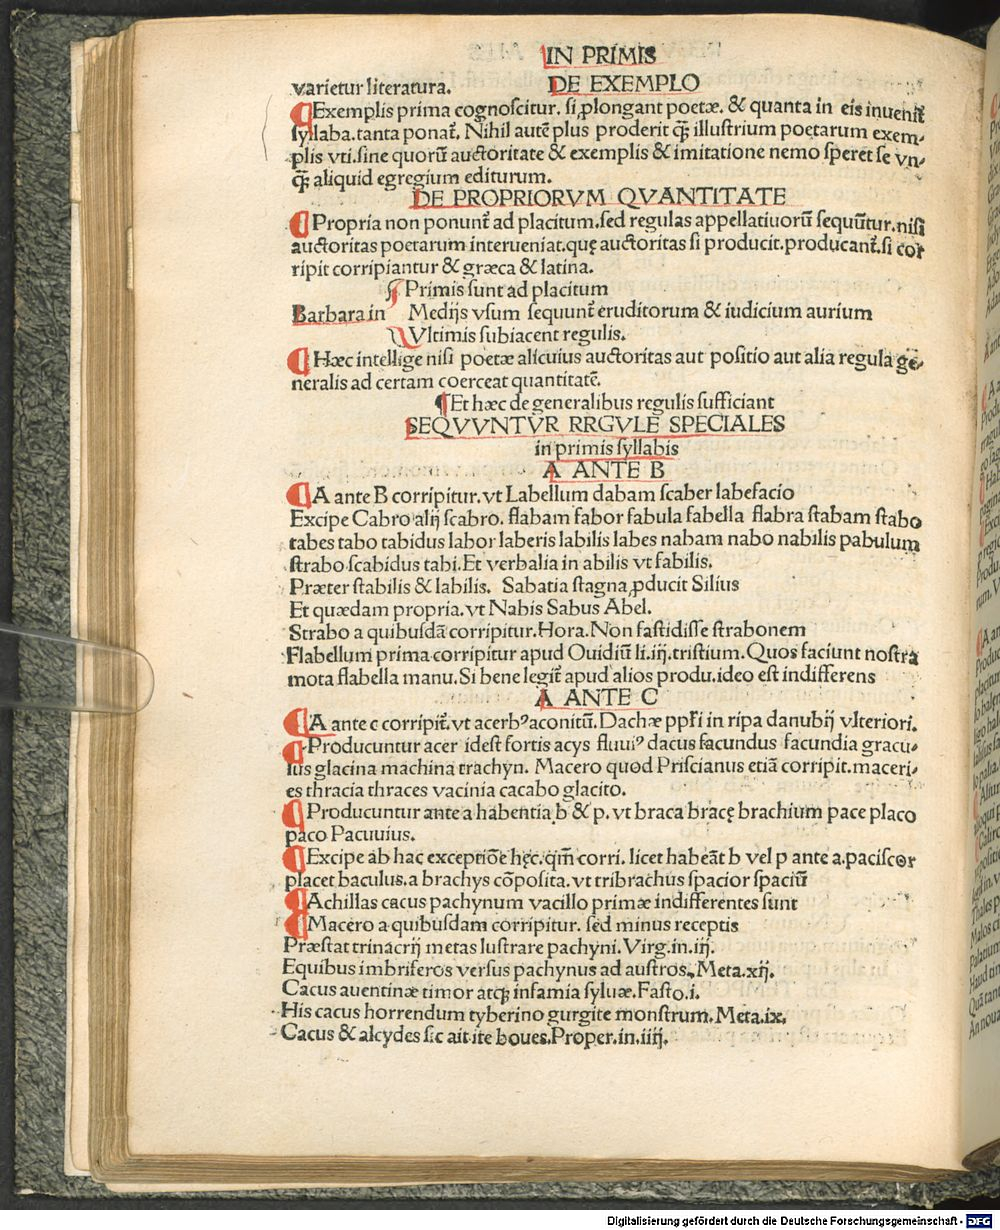 IN PRIMIS
varietur literatura. DE EXEMPLO
¶Exemplis prima cognoscitur. si ꝓlongant poetæ. & quanta in eis inuenit̄
syllaba. tanta ponat̄. Nihil autē plus proderit q̄ꝫ illustrium poetarum exem-
plis vti. sine quorū auctoritate & exemplis & imitatione nemo speret se vn-
q̄ꝫ aliquid egregium editurum.
DE PROPRIORVM QVANTITATE
¶Propria non ponunt̄ ad placitum. sed regulas appellatiuorū sequūtur. nisi
auctoritas poetarum interueniat. quę auctoritas si producit. producant̄. si cor
ripit corripiantur & græca & latina.
Primis sunt ad placitum
Barbara in Medijs vsum sequunt̄ eruditorum & iudicium aurium
Vltimis subiacent regulis.
¶Hæc intellige nisi poetæ alicuius auctoritas aut positio aut alia regula gē-
neralis ad certam coerceat quantitatē.
¶Et hæc de generalibus regulis sufficiant
SEQVVNTVR RRGVLE SPECIALES
in primis syllabis
A ANTE B
¶A ante B corripitur. vt Labellum dabam scaber labefacio
Excipe Cabro alij scabro. flabam fabor fabula fabella flabra stabam stabo
tabes tabo tabidus labor laberis labilis labes nabam nabo nabilis pabulum
strabo scabidus tabi. Et verbalia in abilis vt fabilis.
Præter stabilis & labilis. Sabatia stagna ꝓducit Silius
Et quædam propria. vt Nabis Sabus Abel.
Strabo a quibusdā corripitur. Hora. Non fastidisse strabonem
Flabellum prima corripitur apud Ouidiū li. iij. tristium. Quos faciunt nostra
mota flabella manu. Si bene legit̄ apud alios produ. ideo est indifferens
A ANTE C
¶A ante c corripit̄. vt acerbꝰ aconitū. Dachæ pp̄ri in ripa danubij vlteriori.
¶Producuntur acer idest fortis acys fluuiꝰ dacus facundus facundia gracu-
lus glacina machina trachyn. Macero quod Priscianus etiā corripit. maceri-
es thracia thraces vacinia cacabo glacito.
¶Producuntur ante a habentia b & p. vt braca bracę brachium pace placo
paco Pacuuius.
¶Excipe ab hac exceptiōe hęc. qm̄ corri. licet habeāt b vel p ante a. paciscor
placet baculus. a brachys cōposita. vt tribrachus spacior spaciū
¶Achillas cacus pachynum vacillo primæ indifferentes sunt
¶Macero a quibusdam corripitur. sed minus receptis
Præstat trinacrij metas lustrare pachyni. Virg. in. iij.
Equibus imbriferos versus pachynus ad austros. Meta. xij.
Cacus auentinæ timor atqꝫ infamia syluæ. Fasto. i.
His cacus horrendum tyberino gurgite monstrum. Meta. ix.
Cacus & alcydes sic ait ite boues. Proper. in. iiij.
Digitalisierung gefördert durch die Deutsche Forschungsgemeinschaft - DFG